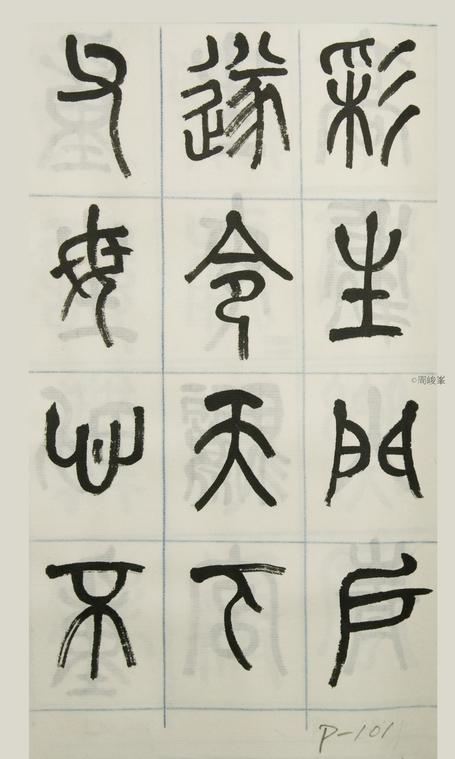 彩生門戶
遂令天下
父母心不
©周峻峯
P-101